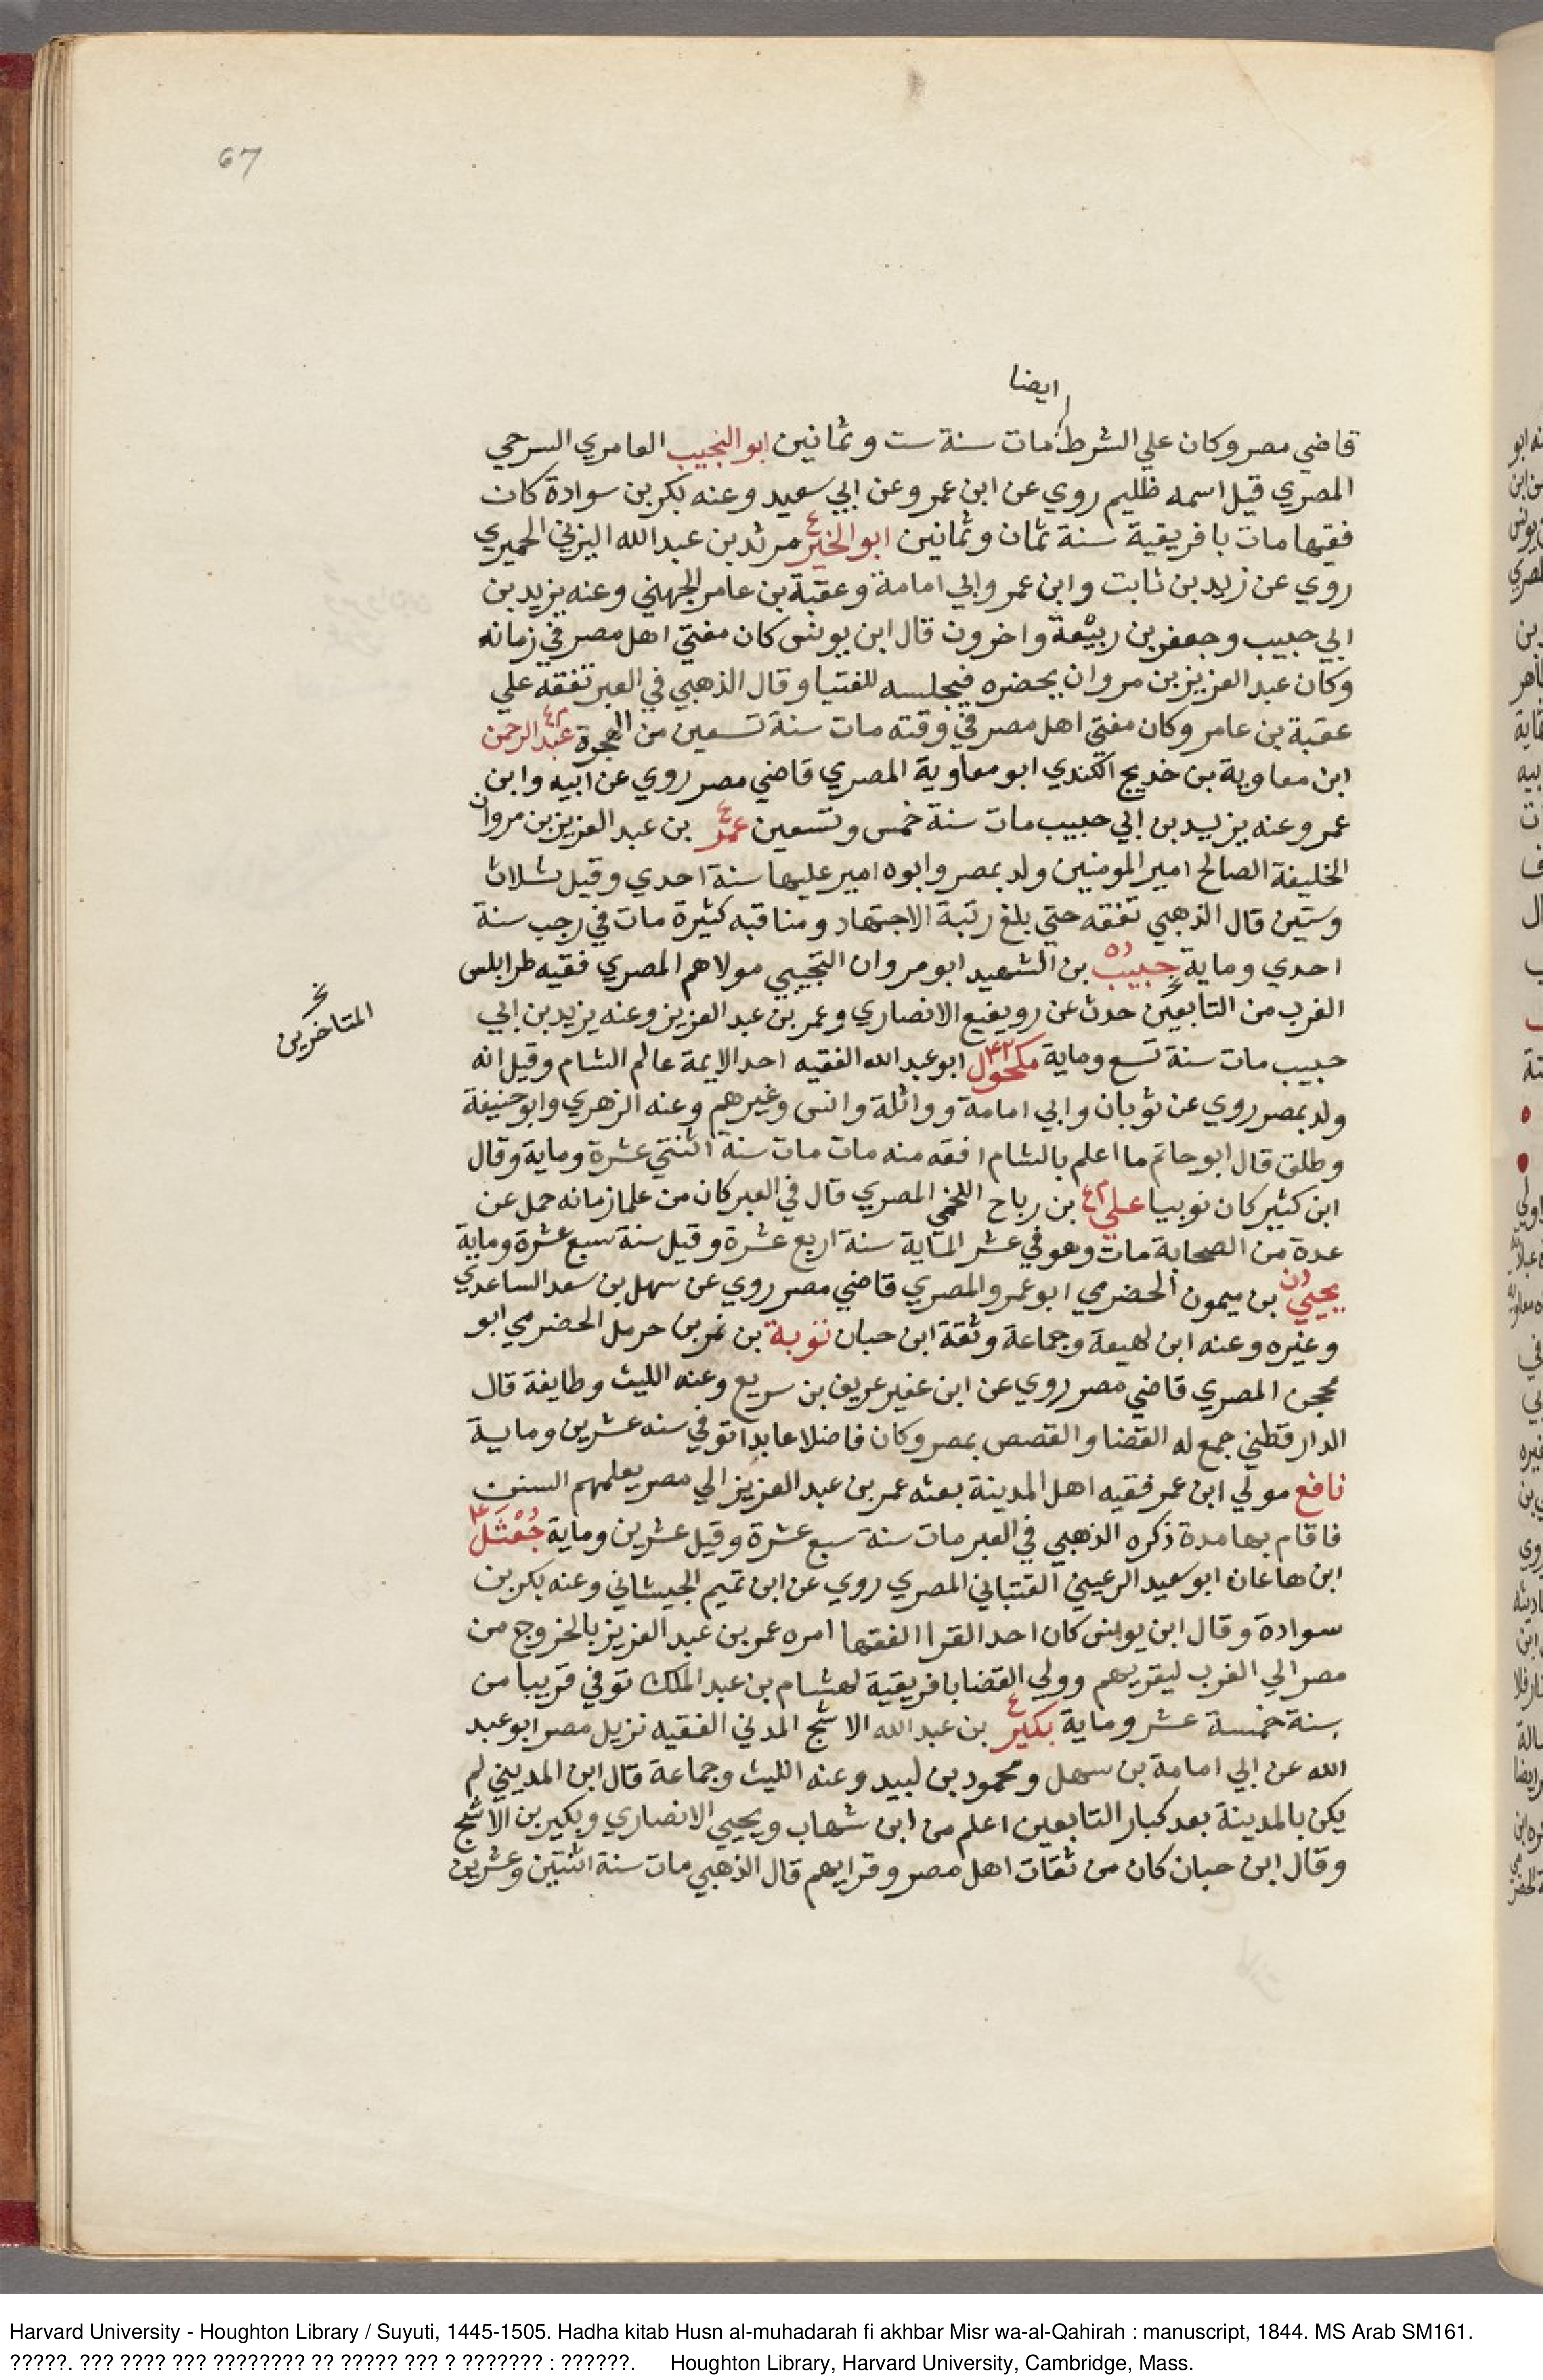 67
ايضا
قاضي مصر وكان علي الشرط مات سنة ست وثمانين ابو النجيب العامري السرحي
المصري قيل اسمه ظليم روي عن ابن عمر وعن ابي سعيد وعنه بكر بن سوادة كان
فقيها مات بافريقية سنة ثمان وثمانين ابو الخير مرثد بن عبد الله اليزني الحميري
روي عن زيد بن ثابت وابن عمر وابي امامة وعقبة بن عامر الجهني وعنه يزيد بن
ابي حبيب وجعفر بن ربيعة واخرون قال ابن يونس كان مفتي اهل مصر في زمانه
وكان عبد العزيز بن مروان يحضره فيجلسه للفتيا وقال الذهبي في العبر تفقه علي
عقبة بن عامر وكان مفتي اهل مصر في وقته مات سنة تسعين من الهجرة عبد الرحمن
ابن معاوية بن خديج الكندي ابو معاوية المصري قاضي مصر روي عن ابيه وابن
عمر وعنه يزيد بن ابي حبيب مات سنة خمس وتسعين عمر بن عبد العزيز بن مروان
الخليفة الصالح امير المومنين ولد بمصر وابوه امير عليها سنة احدي وقيل ثلاث
وستين قال الذهبي تفقه حتي بلغ رتبة الاجتهاد ومناقبه كثيرة مات في رجب سنة
احدي وماية حبيب بن الشهيد ابو مروان التجيبي مولاهم المصري فقيه طرابلس
الغرب من التابعين حدث عن رويفع الانصاري وعمر بن عبد العزيز وعنه يزيد بن ابي
المتاخرين
حبيب مات سنة تسع وماية مكحول ابو عبد الله الفقيه احد الايمة عالم الشام وقيل انه
ولد بمصر روي عن ثوبان وابي امامة وواثلة وانس وغيرهم وعنه الزهري وابو حنيفة
وطلق قال ابو حاتم ما اعلم بالشام افقه منه مات مات سنة اثنتي عشرة وماية وقال
ابن كثير كان نوبيا علي بن رباح اللخمي المصري قال في العبر كان من علما زمانه حمل عن
عدة من الصحابة مات وهو في عشر الماية سنة اربع عشرة وقيل سنة سبع عشرة وماية
يحيي بن ميمون الحضرمي ابو عمرو المصري قاضي مصر روي عن سهل بن سعد الساعدي
وغيره وعنه ابن لهيعة وجماعة وثقة ابن حبان توبة بن نمر بن حرمل الحضرمي ابو
محجن المصري قاضي مصر روي عن ابن عفير عريف بن سريع وعنه الليث وطايفة قال
الدارقطني جمع له القضا والقصص بمصر وكان فاضلا عابدا توفي سنه عشرين وماية
نافع مولي ابن عمر فقيه اهل المدينة بعثه عمر بن عبد العزيز الي مصر يعلمهم السنن
فاقام بها مدة ذكره الذهبي في العبر مات سنة سبع عشرة وقيل عشرين وماية جُعْثَل
ابن هاعان ابو سعيد الرعيني القتباني المصري روي عن ابن تميم الجيشاني وعنه بكر بن
سوادة وقال ابن يونس كان احد القرا الفقها امره عمر بن عبد العزيز بالخروج من
مصر الي الغرب ليقريهم وولي القضا بافريقية لهشام بن عبد الملك توفي قريبا من
سنة خمسة عشر وماية بكير بن عبد الله الاشج المدني الفقيه نزيل مصر ابو عبد
الله عن ابي امامة بن سهل ومحمود بن لبيد وعنه الليث وجماعة قال ابن المديني لم
يكن بالمدينة بعد كبار التابعين اعلم من ابن شهاب ويحيي الانصاري وبكير بن الاشج
وقال ابن حبان كان من ثقات اهل مصر وقرايهم قال الذهبي مات سنة اثنتين وعشرين
Harvard University - Houghton Library / Suyuti, 1445-1505. Hadha kitab Husn al-muhadarah fi akhbar Misr wa-al-Qahirah : manuscript, 1844. MS Arab SM161.
?????. ??? ???? ??? ???????? ?? ????? ??? ? ??????? : ??????. Houghton Library, Harvard University, Cambridge, Mass.